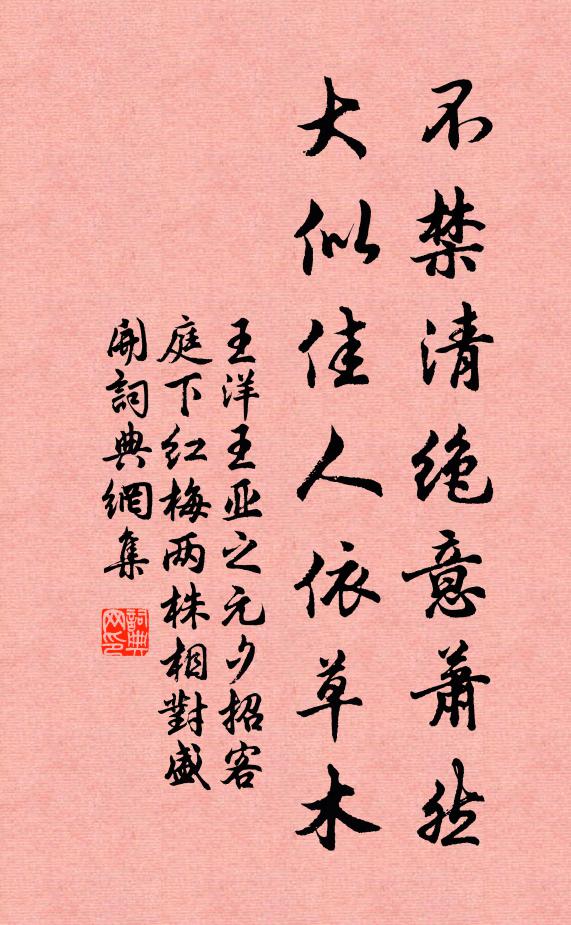 不禁清绝意萧然
大似佳人依草木
王洋王亚之元夕招客
庭下红梅两株相對盛
開詞典網集
詞典
网印